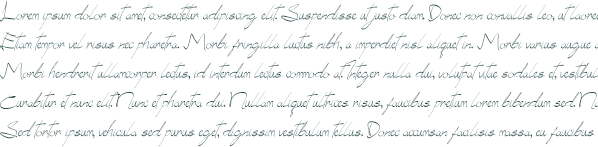 Lorem ipsum dolor sit amet, consectetur adipiscing elit. Suspendisse ut justo diam. Donec non convallis leo, ut laoreet
Etiam tempor vel risus nec pharetra. Morbi fringilla luctus nibh, a imperdiet nisl aliquet in. Morbi varius augue a
Morbi hendrerit ullamcorper lectus, id interdum lectus commodo at. Integer nulla dui, volutpat vitae sodales et, vestibul
Curabitur et nunc elit. Nunc et pharetra dui. Nullam aliquet ultrices risus, faucibus pretium lorem bibendum sed. N
Sed tortor ipsum, vehicula sed purus eget, dignissim vestibulum tellus. Donec accumsan facilisis massa, eu faucibus